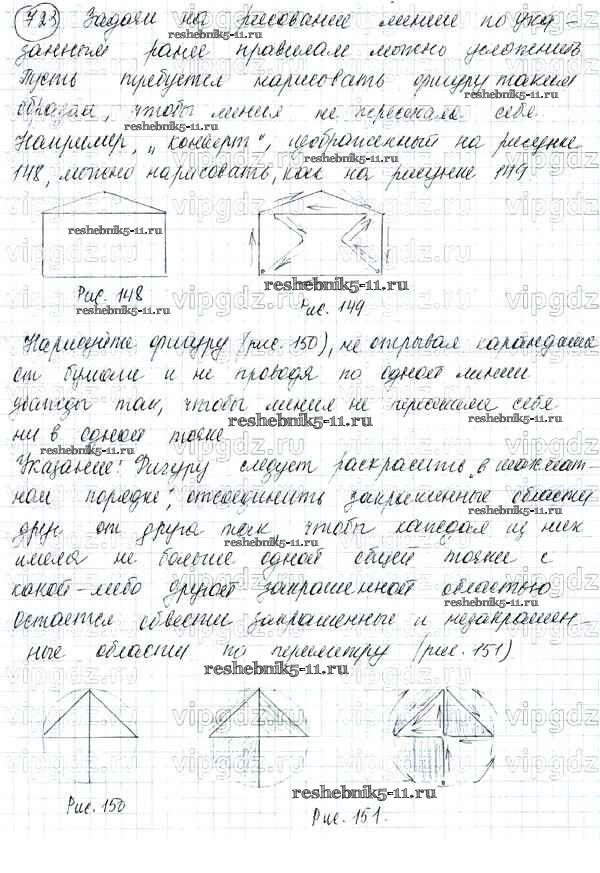 723 Задачи на рисование линии по ука-
занным ранее правилам можно усложнить
Пусть требуется нарисовать фигуру таким
образом, чтобы линия не пересекала себе
reshebnik5-11.ru
Например, „конверт“, изображенный на рисунке
148, можно нарисовать, как на рисунке 149
vipgdz.ru
reshebnik5-11.ru
Рис. 148
Рис. 149
reshebnik5-11.ru
Нарисуйте фигуру (рис. 150), не отрывая карандаша
от бумаги и не проводя по одной линии
дважды так, чтобы линия не пересекала себя
reshebnik5-11.ru
ни в одной точке
Указание: Фигуру следует раскрасить „в шахмат-
ном порядке“, отсоединить закрашенные области
друг от друга так, чтобы каждая из них
имела не больше одной общей точки с
какой-либо другой закрашенной областью
reshebnik5-11.ru
Остается обвести закрашенные и незакрашен-
ные области по периметру (рис. 151)
reshebnik5-11.ru
vipgdz.ru
Рис. 150
reshebnik5-11.ru
Рис. 151.